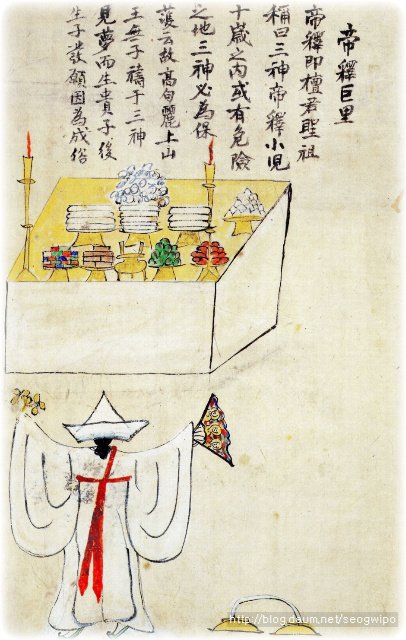 帝釋巨里
帝釋即檀君聖祖
稱曰三神帝釋小児
十歲之內或有危險
之地三神必為保
護云故高句麗上山
王無子禱于三神
見夢而生貴子後
生子發願因為成俗
http://blog.daum.net/seogwipo